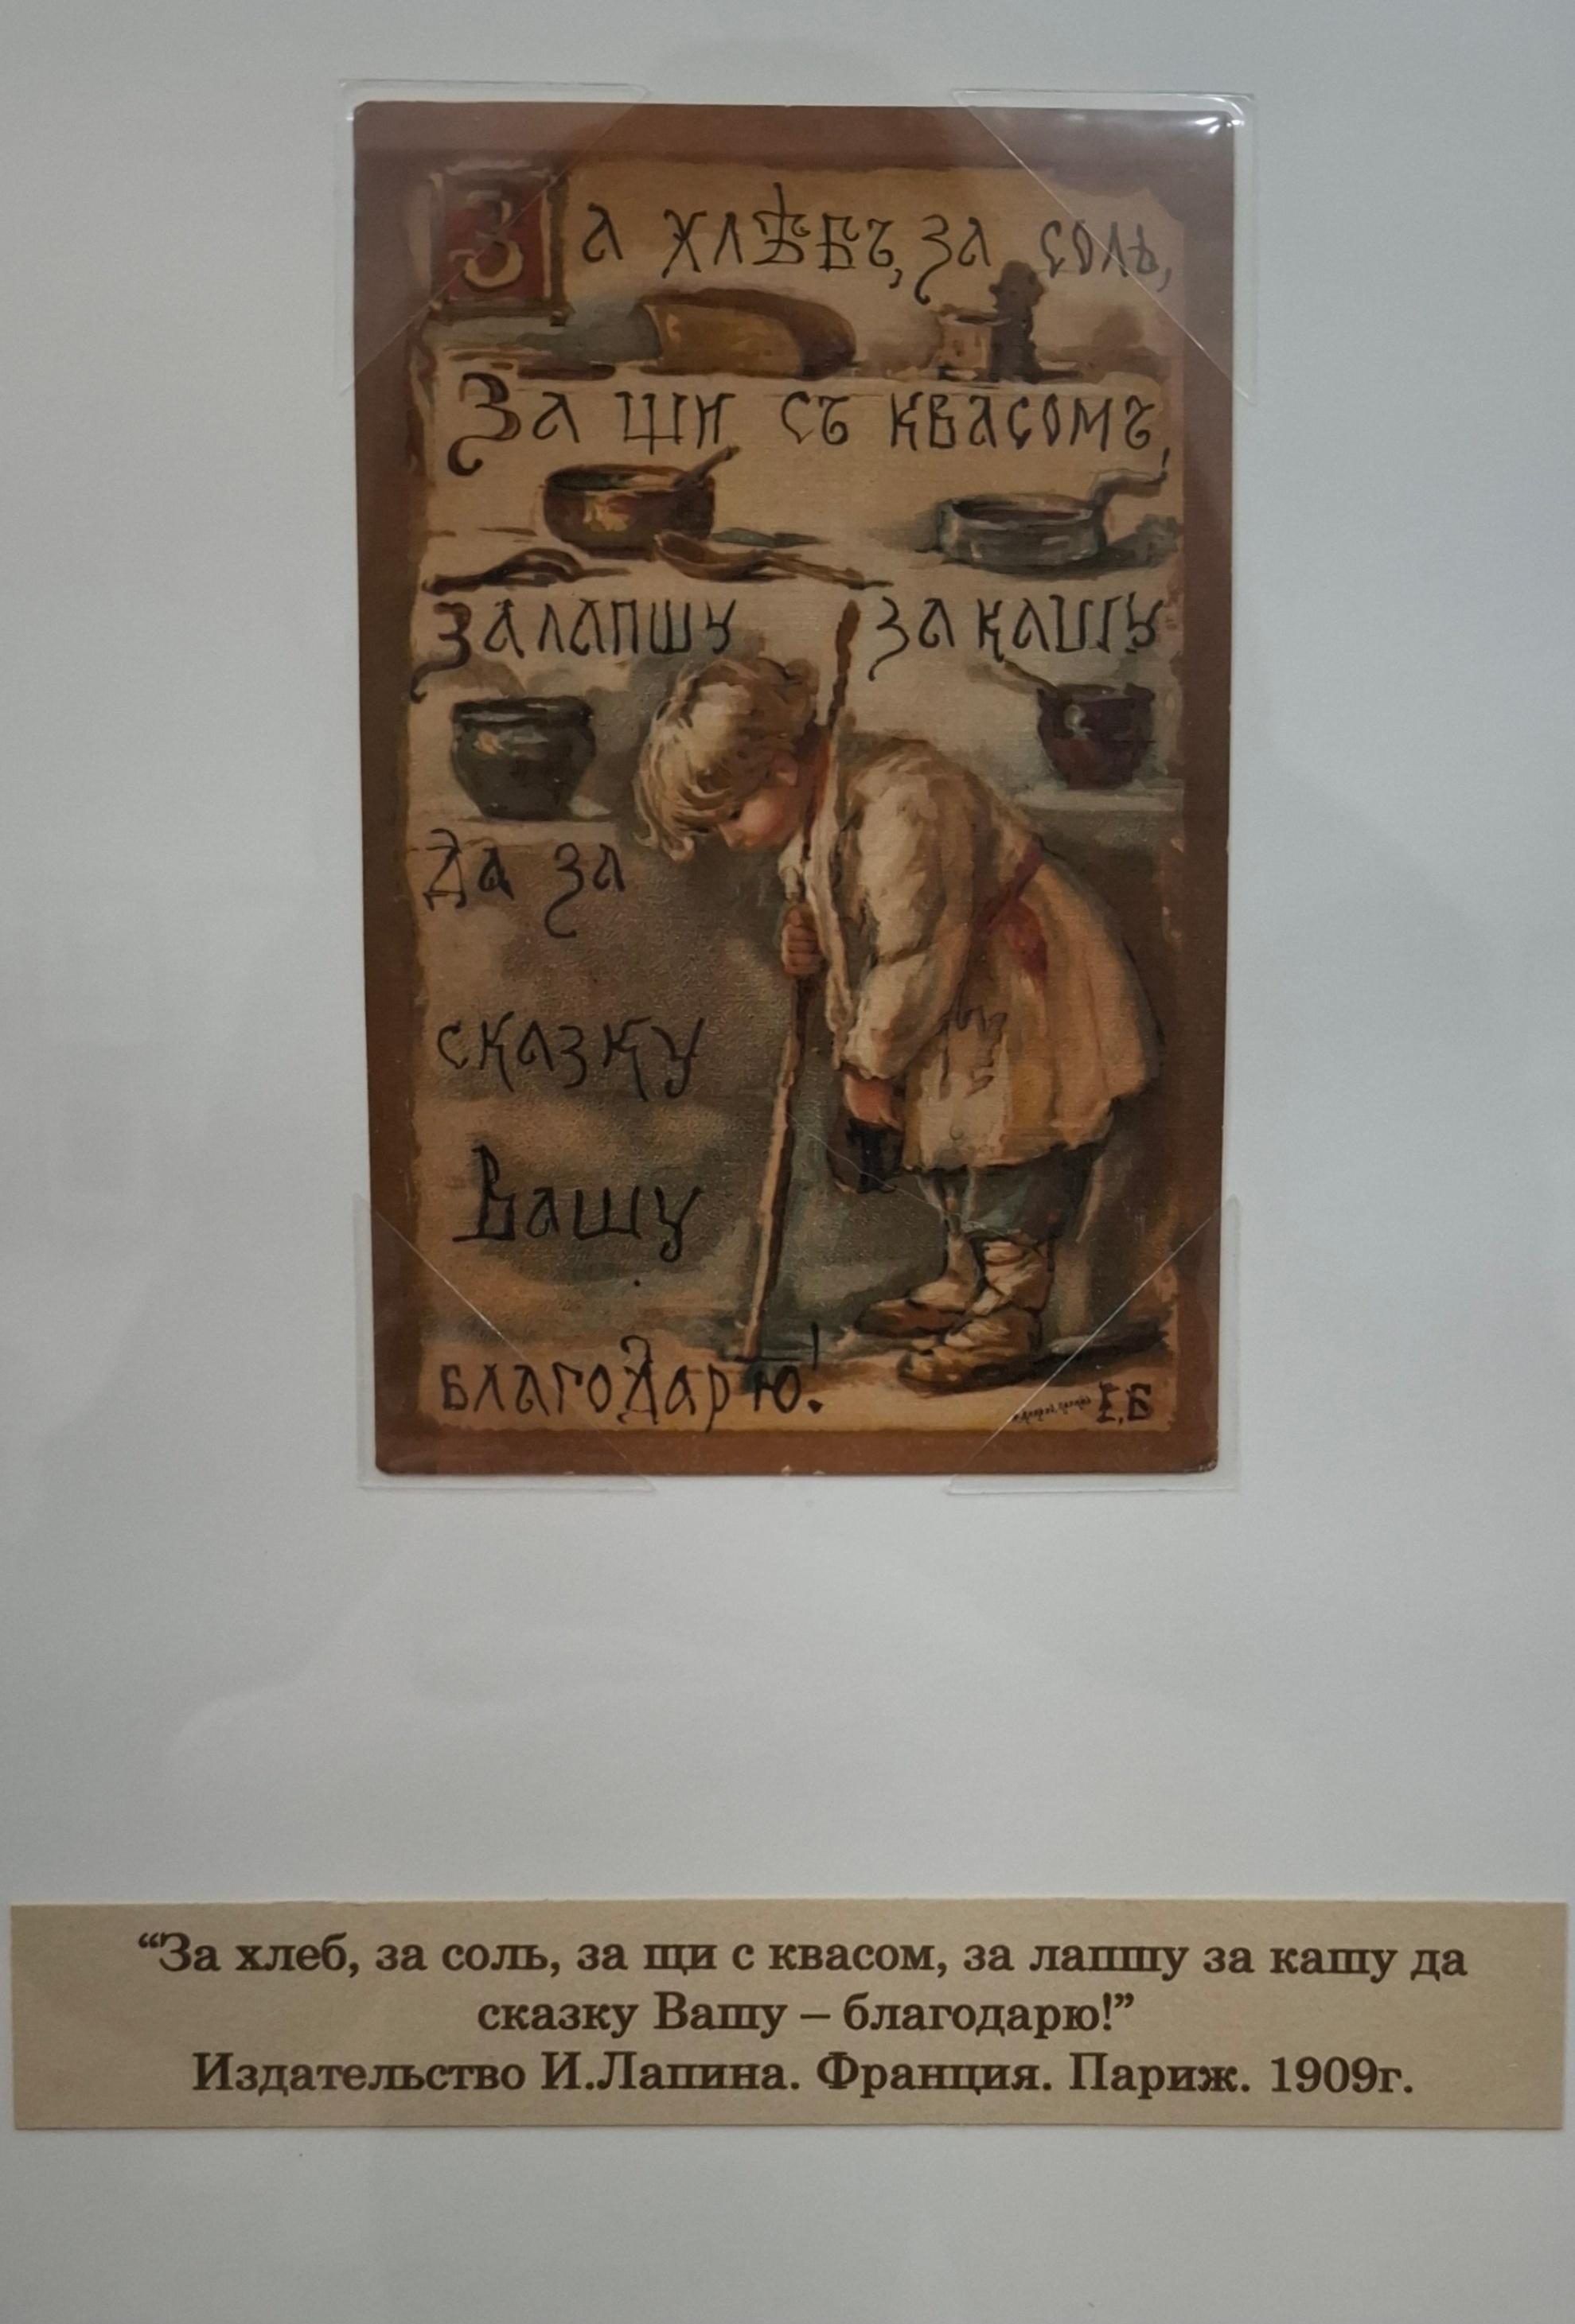 За хлѣбъ, за соль,
За щи съ квасомъ,
За лапшу за кашу
Да за
сказку
Вашу
благодарю!
Е.Б
“За хлеб, за соль, за щи с квасом, за лапшу за кашу да
сказку Вашу – благодарю!”
Издательство И.Лапина. Франция. Париж. 1909г.